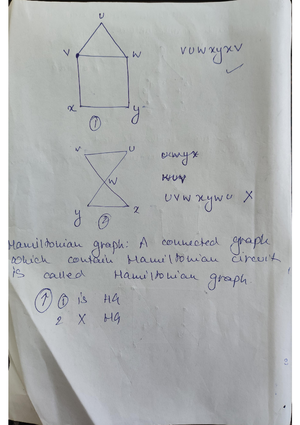 U
V W
V U W x y x V
x y
①
V U
W
U V W x y W U X
y x
②
Hamiltonian graph: A connected graph
which contain Hamiltonian circuit
is called Hamiltonian graph.
① is HG
2 X HG